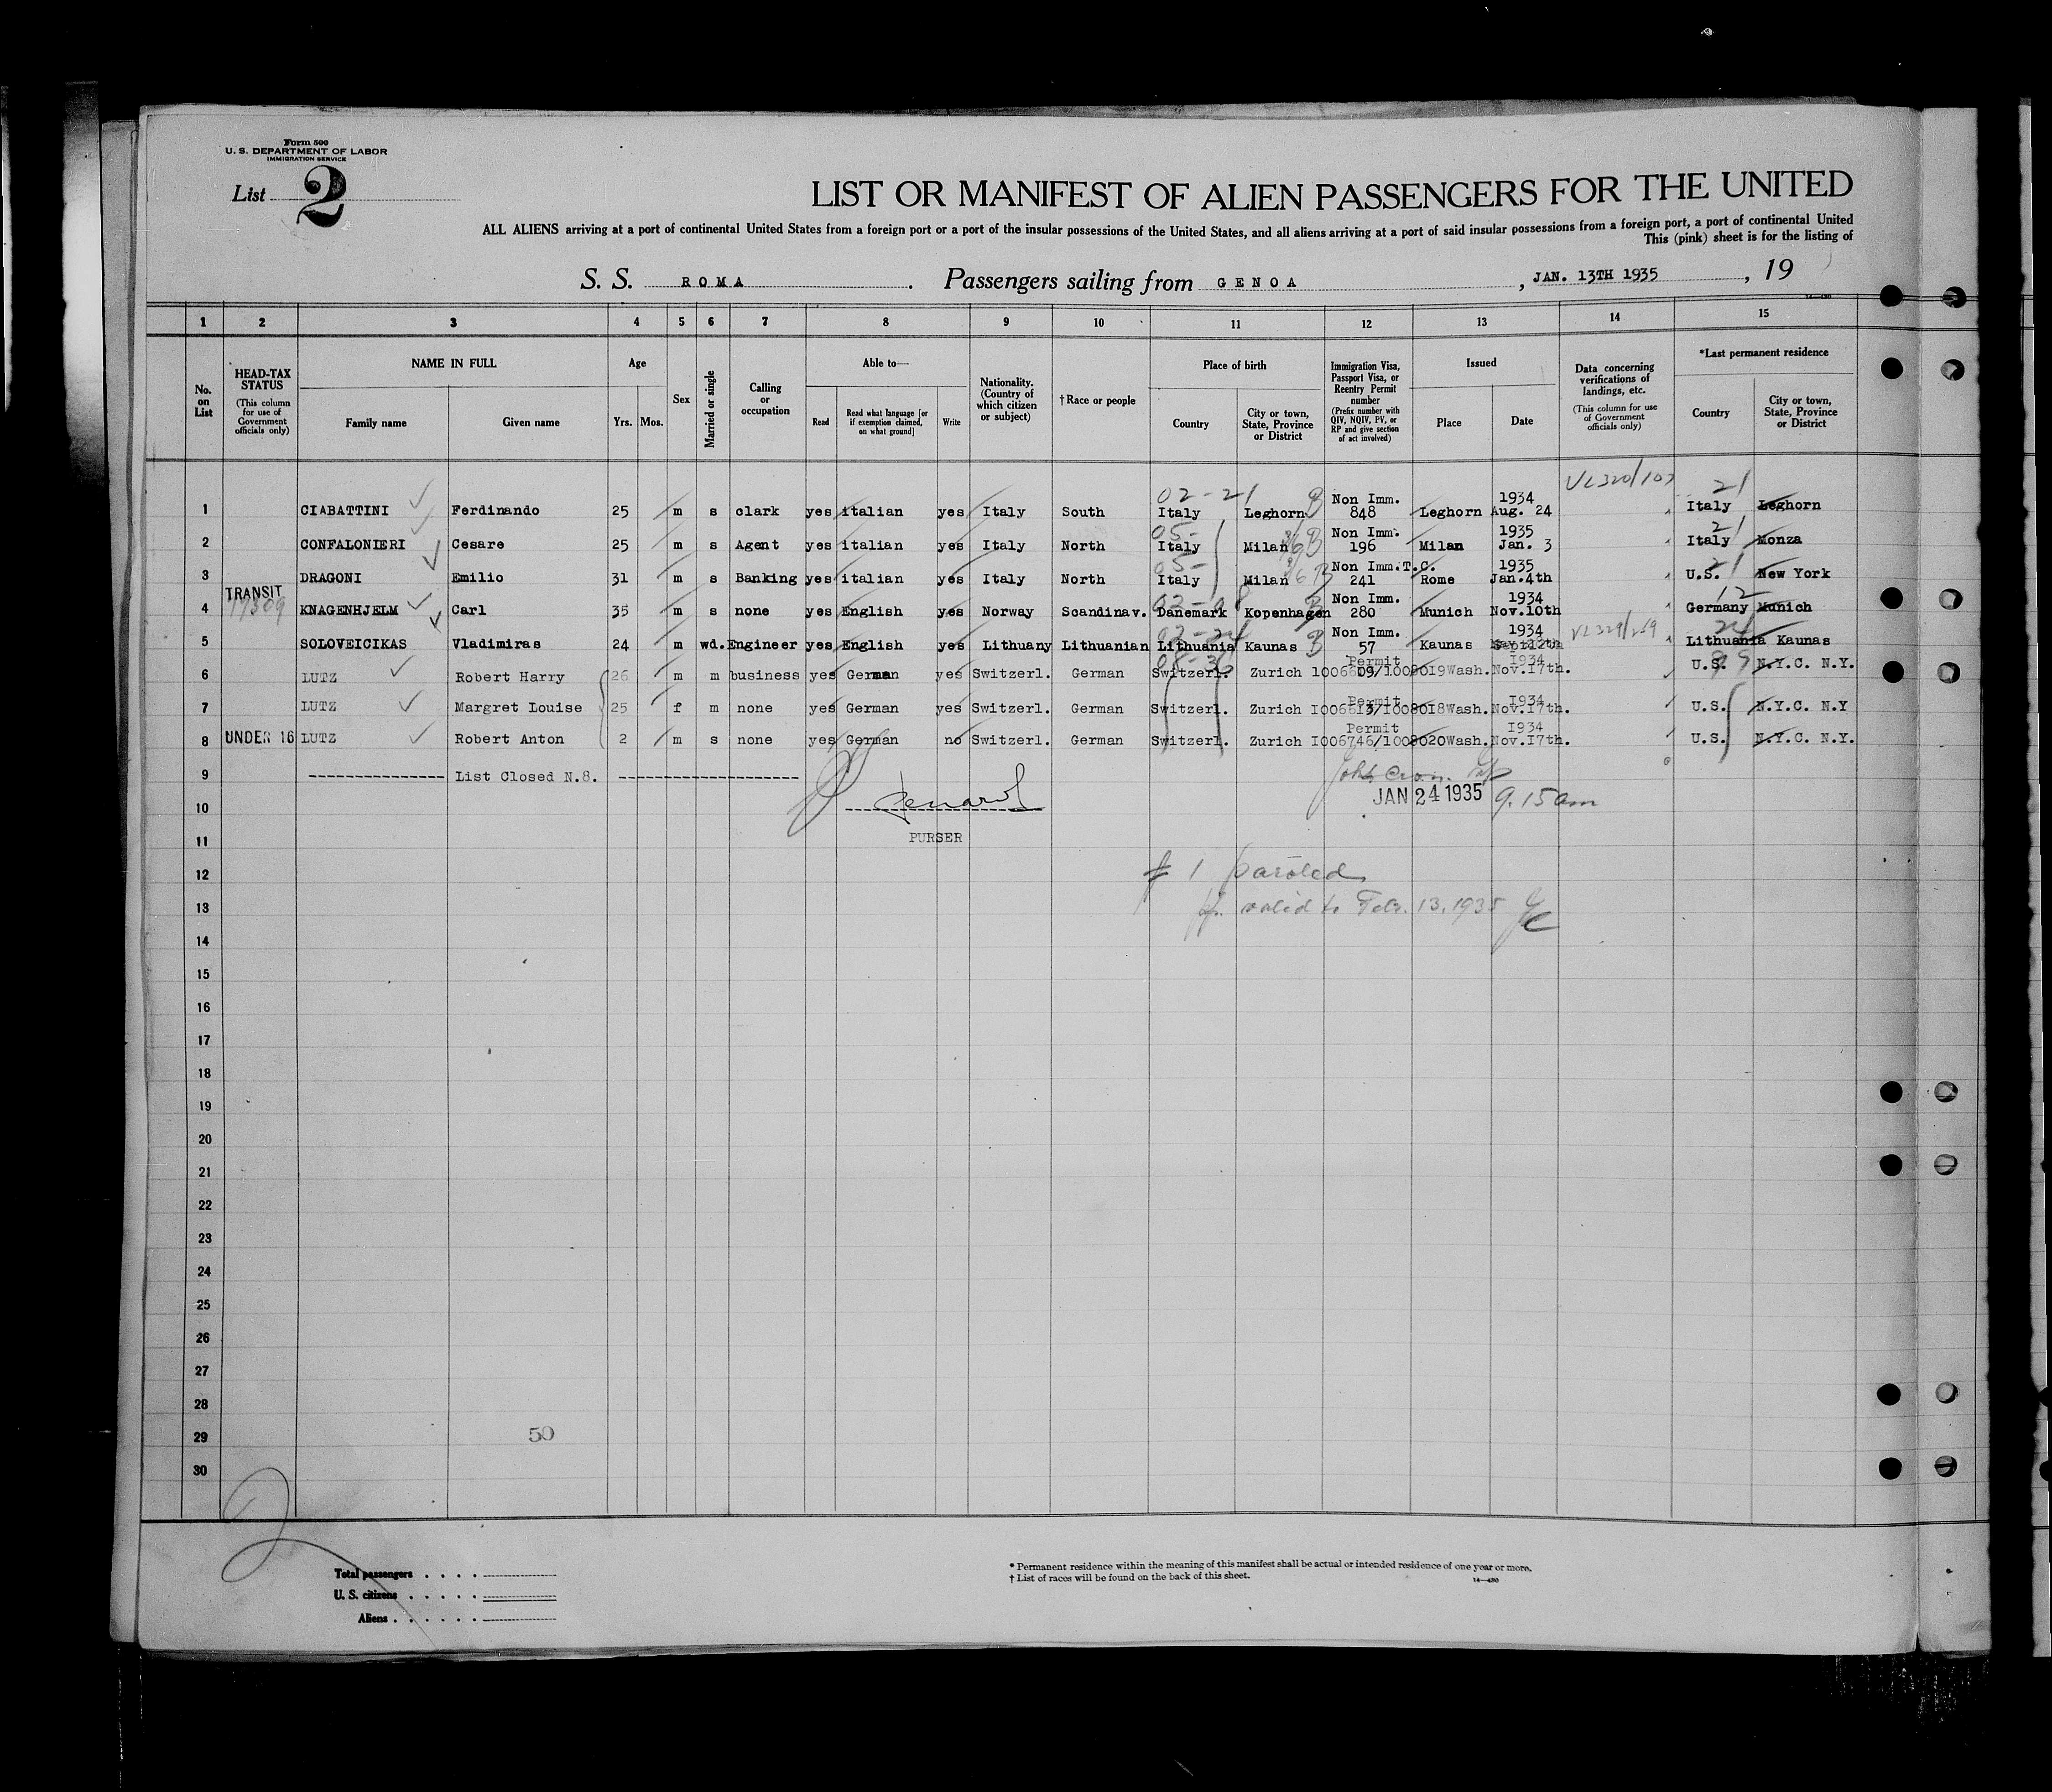 Form 500
U. S. DEPARTMENT OF LABOR
IMMIGRATION SERVICE
List 2
LIST OR MANIFEST OF ALIEN PASSENGERS FOR THE UNITED
ALL ALIENS arriving at a port of continental United States from a foreign port or a port of the insular possessions of the United States, and all aliens arriving at a port of said insular possessions from a foreign port, a port of continental United
This (pink) sheet is for the listing of
S. S. ROMA. Passengers sailing from GENOA, JAN. 13TH 1935, 19
1 2 3 4 5 6 7 8 9 10 11 12 13 14 15
No. on List
HEAD-TAX STATUS (This column for use of Government officials only)
NAME IN FULL
Family name
Given name
Age
Yrs. Mos.
Sex
Married or single
Calling or occupation
Able to—
Read
Read what language [or if exemption claimed, on what ground]
Write
Nationality. (Country of which citizen or subject)
†Race or people
Place of birth
Country
City or town, State, Province or District
Immigration Visa, Passport Visa, or Reentry Permit number (Prefix number with QIV, NQIV, PV, or RP and give section of act involved)
Issued
Place
Date
Data concerning verifications of landings, etc. (This column for use of Government officials only)
*Last permanent residence
Country
City or town, State, Province or District
02-21 B VL320/107 21
1 CIABATTINI Ferdinando 25 m s clark yes italian yes Italy South Italy Leghorn Non Imm. 848 Leghorn 1934 Aug. 24 Italy Leghorn
05- B 21
2 CONFALONIERI Cesare 25 m s Agent yes italian yes Italy North Italy Milan Non Imm. 196 Milan 1935 Jan. 3 Italy Monza
05- B 21
3 DRAGONI Emilio 31 m s Banking yes italian yes Italy North Italy Milan Non Imm.T.C. 241 Rome 1935 Jan.4th U.S. New York
12
4 TRANSIT 17309 KNAGENHJELM Carl 35 m s none yes English yes Norway Scandinav. Danemark Kopenhagen Non Imm. 280 Munich 1934 Nov.10th Germany Munich
02-24 B VL329/259 24
5 SOLOVEICIKAS Vladimiras 24 m wd. Engineer yes English yes Lithuany Lithuanian Lithuania Kaunas Non Imm. 57 Kaunas 1934 Lithuania Kaunas
08-36 99
6 LUTZ Robert Harry 26 m m business yes German yes Switzerl. German Switzerl. Zurich Permit 1006609/1008019 Wash. 1934 Nov.17th. U.S. N.Y.C. N.Y.
7 LUTZ Margret Louise 25 f m none yes German yes Switzerl. German Switzerl. Zurich Permit I006513/1008018 Wash. I934 Nov.17th. U.S. N.Y.C. N.Y
8 UNDER 16 LUTZ Robert Anton 2 m s none yes German no Switzerl. German Switzerl. Zurich Permit I006746/1008020 Wash. I934 Nov.17th. U.S. N.Y.C. N.Y.
9 List Closed N.8.
10 JAN 24 1935 9.15am
11 PURSER
12 # 1 paroled
13 valid to Febr. 13. 1935
14
15
16
17
18
19
20
21
22
23
24
25
26
27
28
29 50
30
Total passengers
U. S. citizens
Aliens
* Permanent residence within the meaning of this manifest shall be actual or intended residence of one year or more.
† List of races will be found on the back of this sheet.
14—430